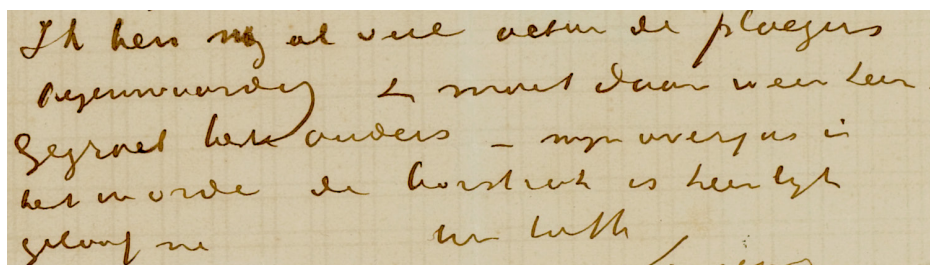 Ik ben nog al veel achter de ploegers
tegenwoordig & moet daar weer heen
Gegroet beste ouders – mijn overjas is
het worde de borstrok is heerlijk
geloof me